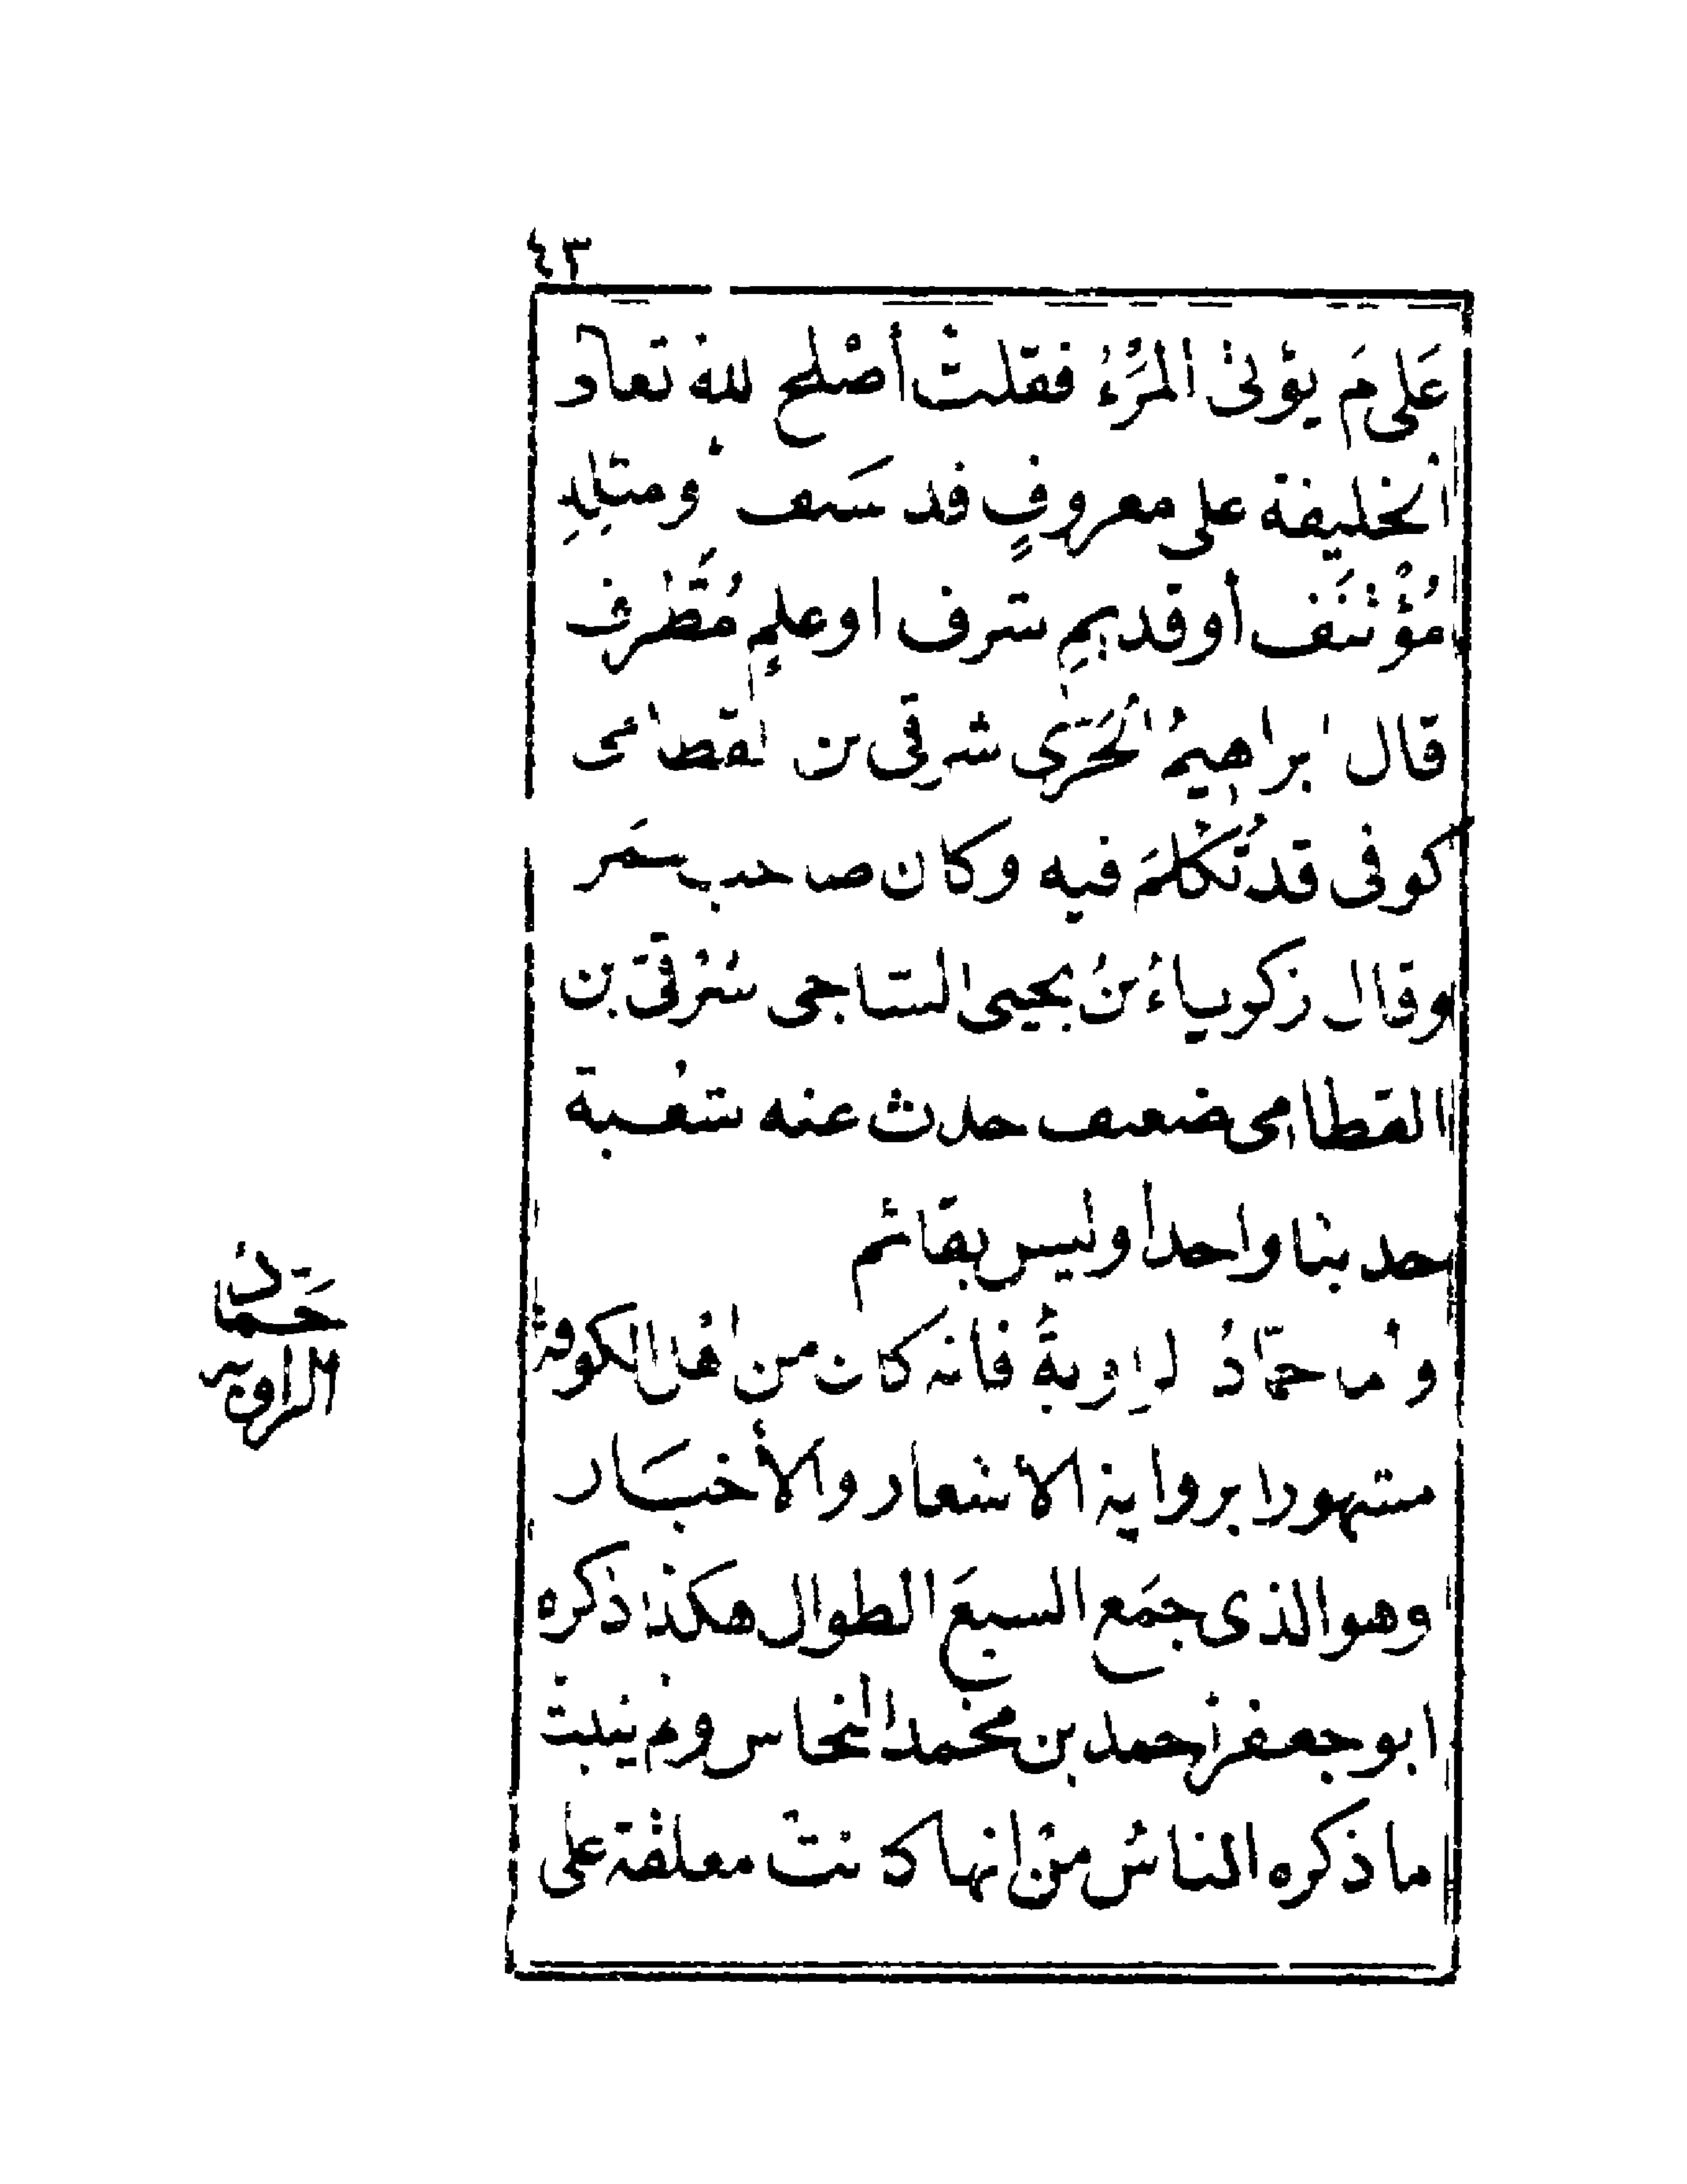 ٤٣
عَلى مَ يؤتى المَرْءُ فقلت أصْلح الله تعالى
الخليفة على معروفٍ قد سَلف أو مثلِهِ
مُؤْتنَف أو قديمِ شرف او علمٍ مُطَّرف
قال ابراهيمُ الحَرَبى شرقى بن القطامى
كوفى قد تُكُلمَ فيه وكان صاحب سَمَر
وقال زكرياءُ بنُ يحيى الساجى شرقى بن
القطامى ضعيف حدث عنه شعبة
حديثا واحدا وليس بقائم
وأما حمّادُ الراويةُ فانه كان من اهل الكوفة
مشهورا برواية الاشعار والأخبَار
وهو الذى جمَع السبعَ الطوال هكذا ذكره
ابو جعفر أحمد بن محمد النحاس ولم يثبت
ما ذكره الناسُ من انها كانت معلقة على
حمَادُ
الراويه